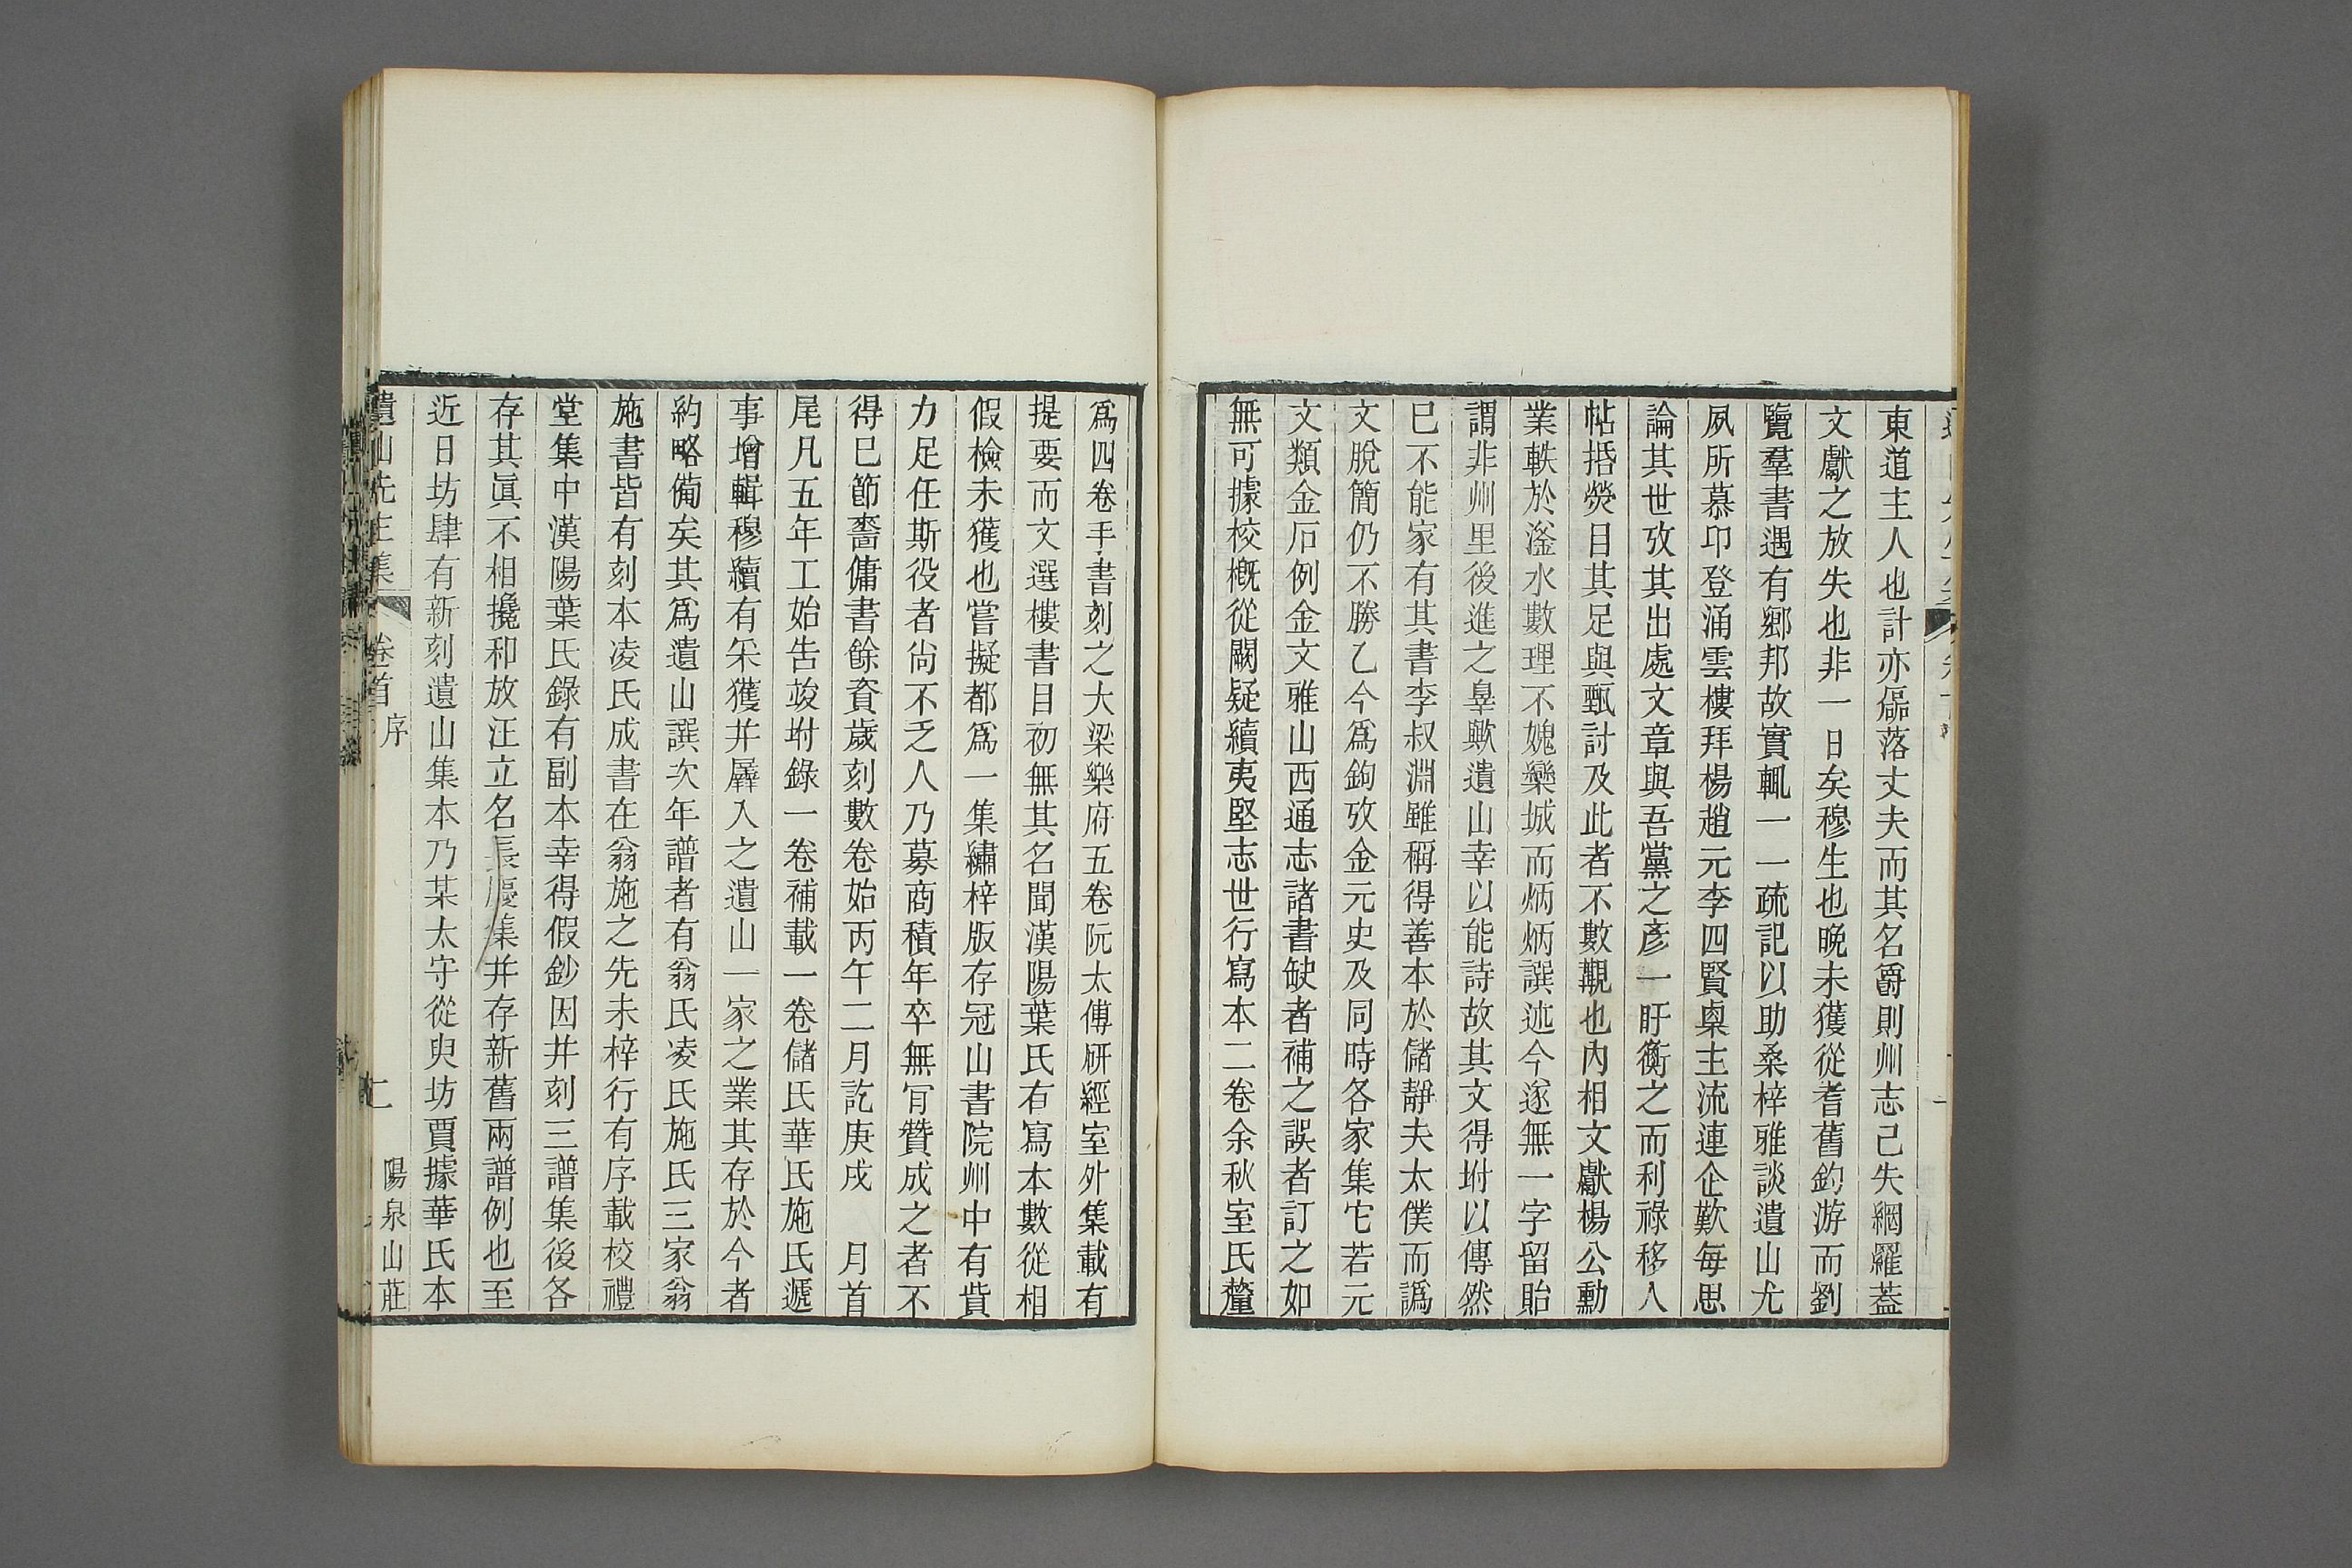 東道主人也計亦磊落丈夫而其名爵則州志己失網羅葢
文獻之放失也非一日矣穆生也晚未獲從耆舊釣游而劉
覽羣書遇有鄉邦故實輒一一疏記以助桑梓雅談遺山尤
夙所慕卬登涌雲樓拜楊趙元李四賢㮚主流連企歎每思
論其世攷其出處文章與吾黨之彥一盱衡之而利祿移人
帖括熒目其足與甄討及此者不數覯也內相文獻楊公勳
業軼於滏水數理不媿欒城而炳炳譔述今遂無一字留貽
謂非州里後進之辠歟遺山幸以能詩故其文得坿以傳然
已不能家有其書李叔淵雖稱得善本於儲靜夫太僕而譌
文脫簡仍不勝乙今爲鉤攷金元史及同時各家集它若元
文類金石例金文雅山西通志諸書缺者補之誤者訂之如
無可據校槪從闕疑續夷堅志世行寫本二卷余秋室氏釐
爲四卷手書刻之大梁樂府五卷阮太傅硏經室外集載有
提要而文選樓書目初無其名聞漢陽葉氏有寫本數從相
假檢未獲也嘗擬都爲一集繡梓版存冠山書院州中有貲
力足任斯役者尙不乏人乃募商積年卒無肎贊成之者不
得已節嗇傭書餘資歲刻數卷始丙午二月訖庚戌　月首
尾凡五年工始吿竣坿錄一卷補載一卷儲氏華氏施氏遞
事增輯穆續有采獲并羼入之遺山一家之業其存於今者
約略備矣其爲遺山譔次年譜者有翁氏凌氏施氏三家翁
施書皆有刻本凌氏成書在翁施之先未梓行有序載校禮
堂集中漢陽葉氏錄有副本幸得假鈔因并刻三譜集後各
存其眞不相攙和放汪立名長慶集并存新舊兩譜例也至
近日坊肆有新刻遺山集本乃某太守從臾坊賈據華氏本
遺山先生集 卷首 序 二 陽泉山莊